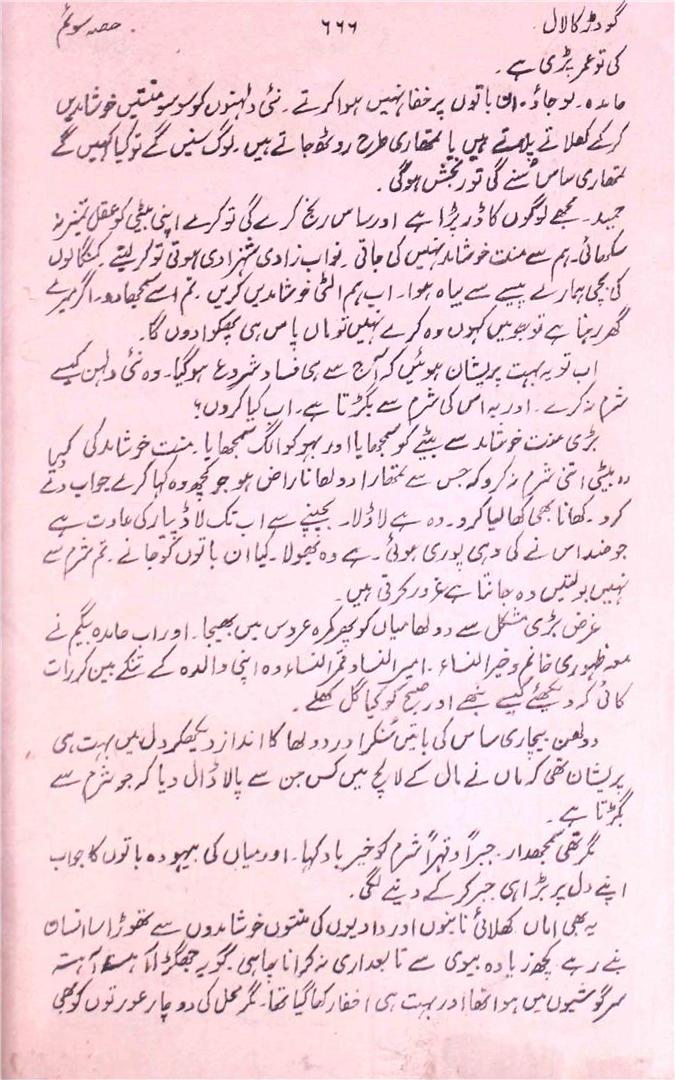 گودڑ کا لال ۶۶۶ حصہ سوئم
کی تو عمر پڑی ہے ۔
حامدہ ۔ لو جاؤ ۔ ان باتوں پر خفا نہیں ہوا کرتے ۔ نئی دلہنوں کو سو سو منتیں خوشامدیں
کر کے کھلاتے پلاتے ہیں یا تمھاری طرح روٹھ جاتے ہیں ۔ لوگ سنیں گے تو کیا کہیں گے
تمھاری ساس سُنے گی تو رنجش ہو گی ۔
حمید ۔ مجھے لوگوں کا ڈر پڑا ہے اور ساس رنج کرے گی تو کرے اپنی بیٹی کو عقل تمیز نہ
سکھائی ۔ ہم سے منت خوشامد نہیں کی جاتی ۔ نواب زادی شہزادی ہوتی تو کر لیتے ۔ کنگالوں
کی بچی ہمارے پیسے سے بیاہ ہوا ۔ اب ہم الٹی خوشامدیں کریں ۔ تم اسے سمجھا دو ۔ اگر میرے
گھر رہنا ہے تو جو میں کہوں وہ کرے نہیں تو ماں پاس ہی پھکوا دوں گا ۔
اب تو یہ بہت پریشان ہوئیں کہ آج سے ہی فساد شروع ہو گیا ۔ وہ نئی دلہن کیسے
شرم نہ کرے ۔ اور یہ اس کی شرم سے بگڑتا ہے ۔ اب کیا کروں؟
بڑی منت خوشامد سے بیٹے کو سمجھایا اور بہو کو الگ سمجھایا ۔ منت خوشامد کی کہا
دہ بیٹی اتنی شرم نہ کرو کہ جس سے تمھارا دولھا ناراض ہو جو کچھ وہ کہا کرے جواب دئے
کرو ۔ کھانا بھی کھا لیا کرو ۔ وہ ہے لاڈلا ۔ بچپنے سے اب تک لاڈ پیار کی عادت ہے
جو ضد اس نے کی وہی پوری ہوئی ۔ ہے وہ بھولا ۔ کیا ان باتوں کو جانے ۔ تم شرم سے
نہیں بولتیں وہ جانتا ہے غرور کرتی ہیں ۔
غرض بڑی مشکل سے دولھا میاں کو پھر کمرہ عروس میں بھیجا ۔ اور اب حامدہ بیگم نے
معہ ظہوری خانم و خیر النساء ۔ امیر النساء و قمر النساء وہ اپنی والدہ کے تنکے بین کر رات
کاٹی کہ دیکھئے کیسے نبھے اور صبح کو کیا گل کھلے ۔
دولھن بیچاری ساس کی باتیں سُنکر اور دولھا کا انداز دیکھکر دل میں بہت ہی
پریشان تھی کہ ماں نے مال کے لالچ میں کس جن سے پالا ڈال دیا کہ جو شرم سے
بگڑتا ہے ۔
مگر تھی سمجھدار ۔ جبراً و قہراً شرم کو خیر باد کہا ۔ اور میاں کی بیہودہ باتوں کا جواب
اپنے دل پر بڑا ہی جبر کر کے دینے لگی ۔
یہ بھی اماں کھلائی نانیوں اور دادیوں کی منتوں خوشامدوں سے تھوڑا سا انسان
بنے رہے کچھ زیادہ بیوی سے تابعداری نہ کرانا چاہی ۔ گو یہ جھگڑا آہستہ آہستہ
سرگوشیوں میں ہوا تھا اور بہت ہی اخفا رکھا گیا تھا ۔ مگر محل کی دو چار عورتوں کو بھی